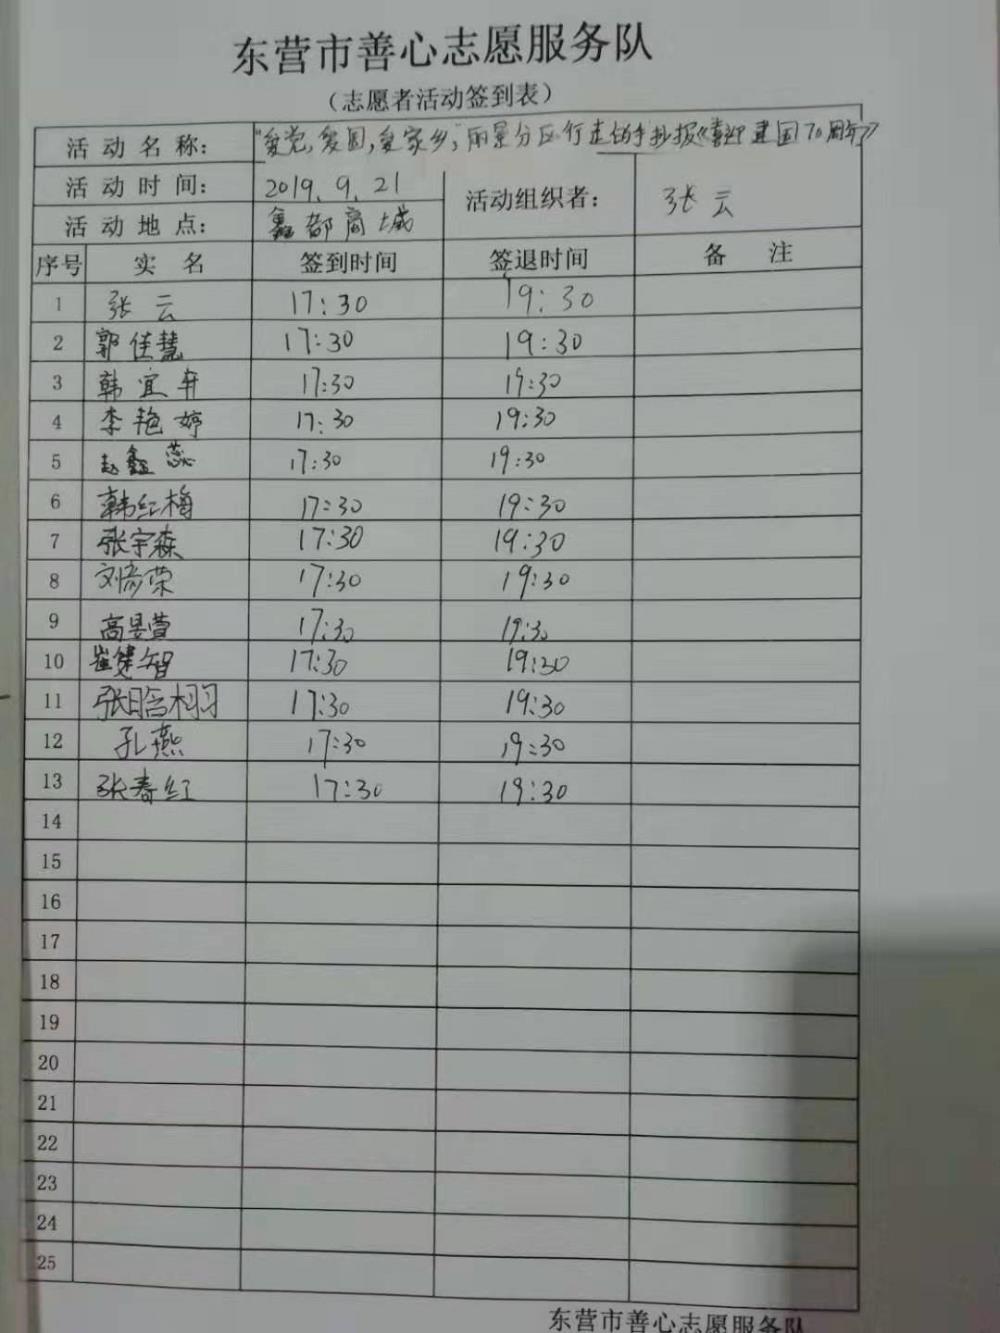 东营市善心志愿服务队
（志愿者活动签到表）
活动名称： "爱党，爱国，爱家乡"，丽景分区行走的手抄报《喜迎建国70周年》
活动时间： 2019.9.21 活动组织者： 张云
活动地点： 鑫都商城
序号 实名 签到时间 签退时间 备注
1 张云 17:30 19:30
2 郭佳慧 17:30 19:30
3 韩宜轩 17:30 19:30
4 李艳婷 17:30 19:30
5 赵鑫蕊 17:30 19:30
6 韩红梅 17:30 19:30
7 张宇森 17:30 19:30
8 刘彦荣 17:30 19:30
9 高昱萱 17:30 19:30
10 崔健智 17:30 19:30
11 张晗栩 17:30 19:30
12 孔燕 17:30 19:30
13 张春红 17:30 19:30
14
15
16
17
18
19
20
21
22
23
24
25
东营市善心志愿服务队